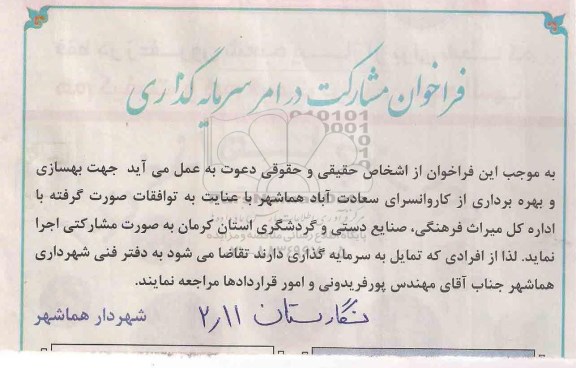 فراخوان مشارکت در امر سرمایه گذاری
به موجب این فراخوان از اشخاص حقیقی و حقوقی دعوت به عمل می آید جهت بهسازی
و بهره برداری از کاروانسرای سعادت آباد هماشهر با عنایت به توافقات صورت گرفته با
اداره کل میراث فرهنگی، صنایع دستی و گردشگری استان کرمان به صورت مشارکتی اجرا
نماید. لذا از افرادی که تمایل به سرمایه گذاری دارند تقاضا می شود به دفتر فنی شهرداری
هماشهر جناب آقای مهندس پورفریدونی و امور قراردادها مراجعه نمایند.
نگارستان ۲٫۱۱ شهردار هماشهر